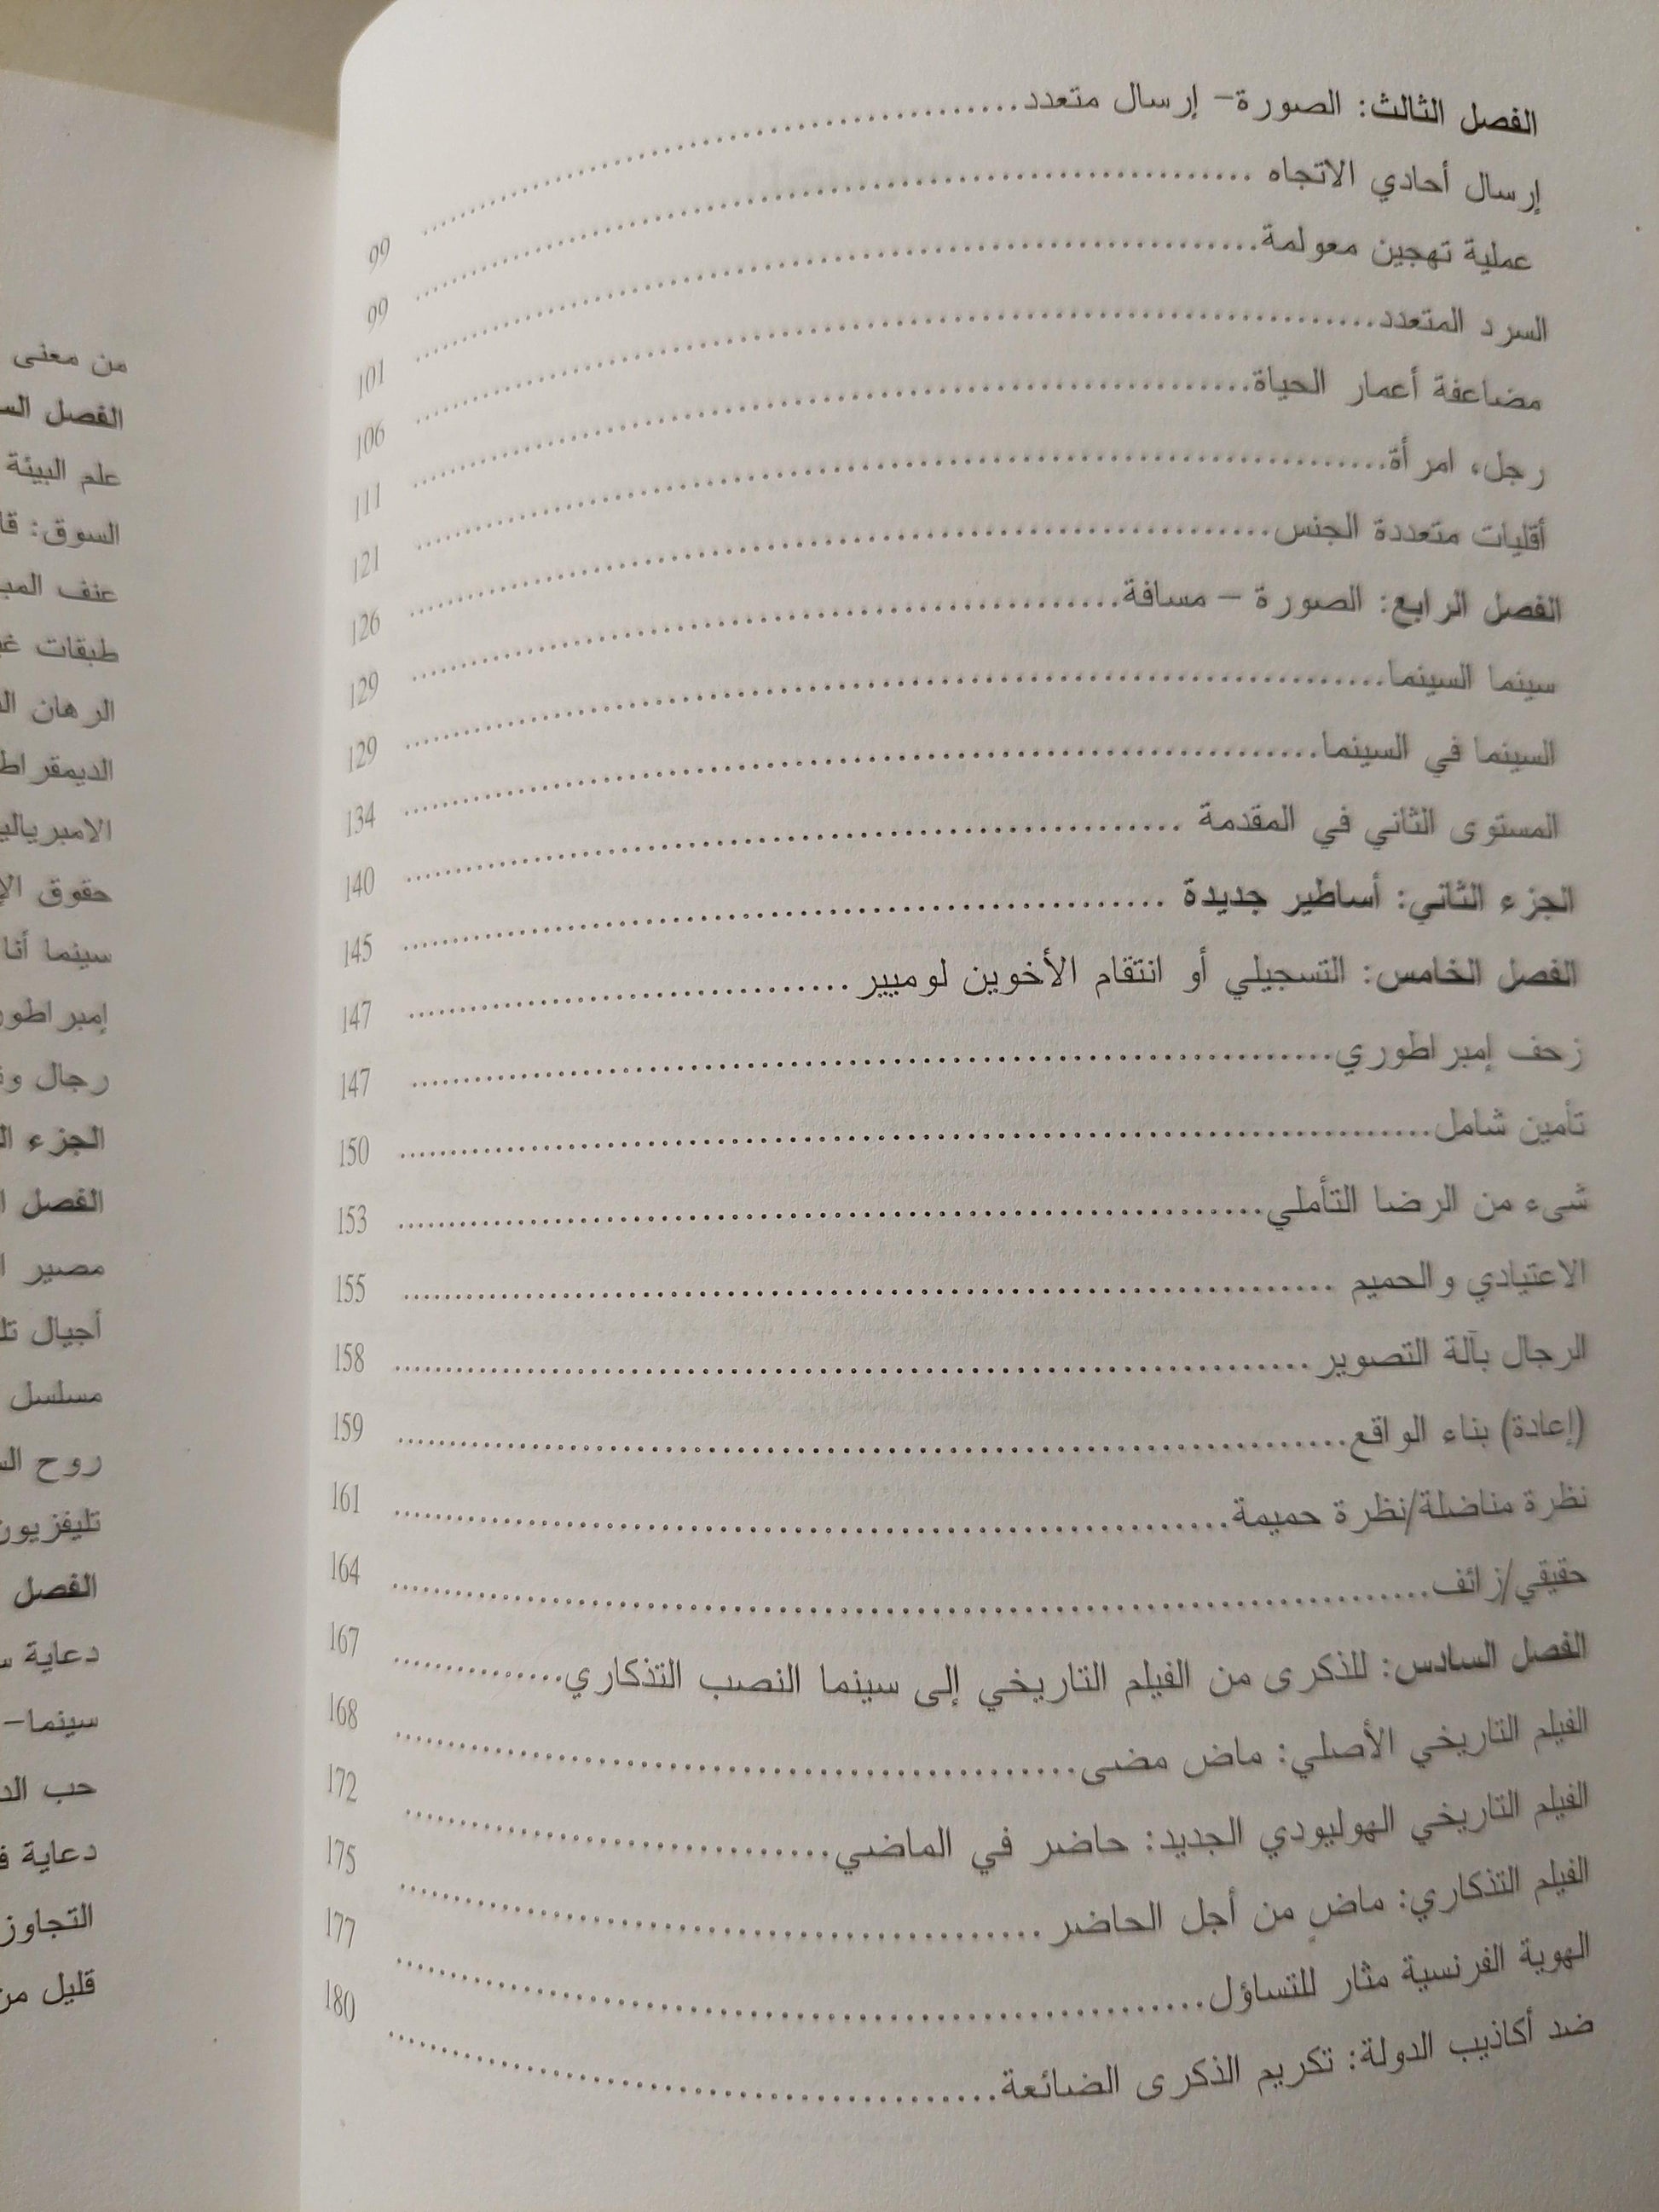 الفصل الثالث: الصورة- إرسال متعدد........ 99
إرسال أحادي الاتجاه ........ 99
عملية تهجين معولمة........ 101
السرد المتعدد........ 106
مضاعفة أعمار الحياة........ 111
رجل، امرأة........ 121
أقليات متعددة الجنس........ 126
الفصل الرابع: الصورة – مسافة........ 129
سينما السينما........ 129
السينما في السينما........ 134
المستوى الثاني في المقدمة ........ 140
الجزء الثاني: أساطير جديدة ........ 145
الفصل الخامس: التسجيلي أو انتقام الأخوين لوميير........ 147
زحف إمبراطوري........ 147
تأمين شامل........ 150
شىء من الرضا التأملي........ 153
الاعتيادي والحميم ........ 155
الرجال بآلة التصوير........ 158
(إعادة) بناء الواقع........ 159
نظرة مناضلة/نظرة حميمة........ 161
حقيقي/زائف........ 164
الفصل السادس: للذكرى من الفيلم التاريخي إلى سينما النصب التذكاري........ 167
الفيلم التاريخي الأصلي: ماض مضى........ 168
الفيلم التاريخي الهوليودي الجديد: حاضر في الماضي........ 172
الفيلم التذكاري: ماضٍ من أجل الحاضر........ 175
الهوية الفرنسية مثار للتساؤل........ 177
ضد أكاذيب الدولة: تكريم الذكرى الضائعة........ 180
من معنى
الفصل
علم البيئة
السوق:
عنف
طبقات
الرهان
حقوق
سينما أنا
رجال
الجزء
الفصل
مصير
أجيال
مسلسل
روح
الفصل
دعاية
سينما–
حب
دعاية
قليل